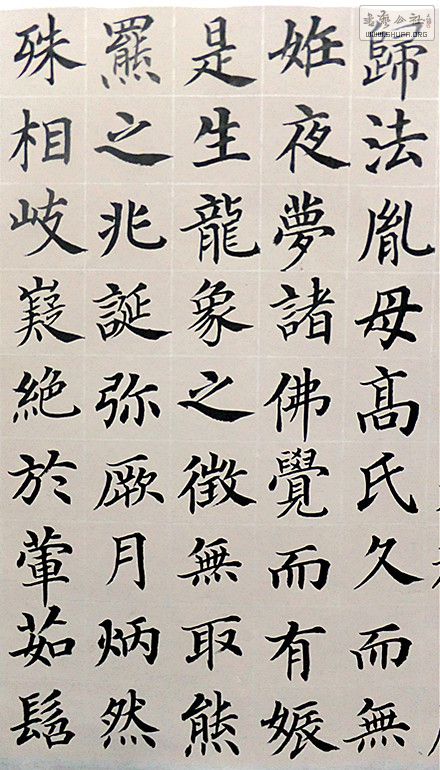 歸法胤母髙氏久而無
姙夜夢諸佛覺而有娠
是生龍象之徵無取熊
羆之兆誕弥厥月炳然
殊相岐嶷絶於葷茹髫
書藝公社
WWW.SHUFA.ORG